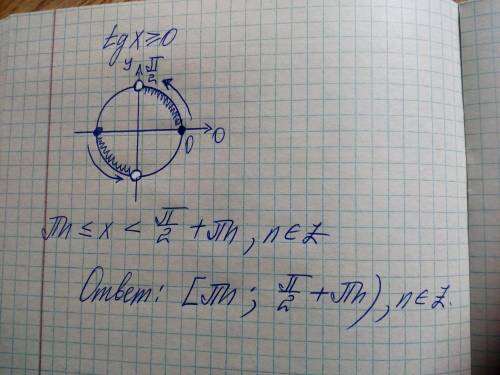 tg x ≥ 0
y π/2
0 0
πn ≤ x < π/2 + πn, n ∈ Z
Ответ: [πn; π/2 + πn), n ∈ Z.